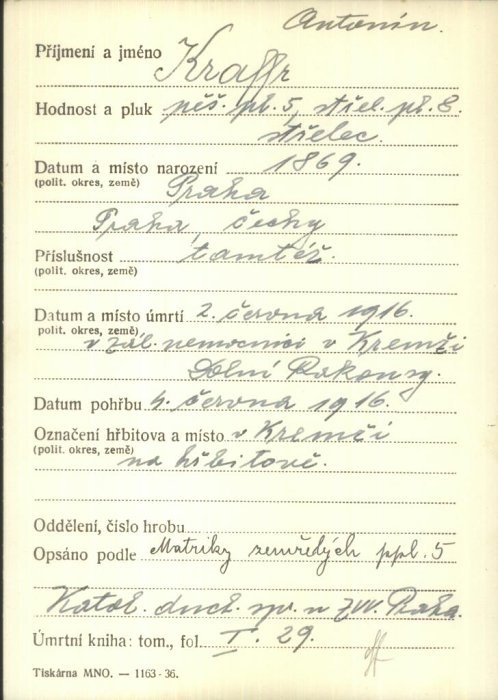 Antonín.
Příjmení a jméno Kraffr
Hodnost a pluk pěš. pl. 5, střel. pl. 8.
střelec.
Datum a místo narození 1869.
(polit. okres, země) Praha
Praha, čechy
Příslušnost tamtéž.
(polit. okres, země)
Datum a místo úmrtí 2. června 1916.
polit. okres, země)
v zál. nemocnici v Kremži
Dolní Rakousy.
Datum pohřbu 4. června 1916.
Označení hřbitova a místo v Kremži
(polit. okres, země)
na hřbitově.
Oddělení, číslo hrobu
Opsáno podle Matriky zemřelých ppl. 5
Katol. duch. spr. u ZVV. Praha.
Úmrtní kniha: tom., fol. I. 29.
Tiskárna MNO. — 1163-36.